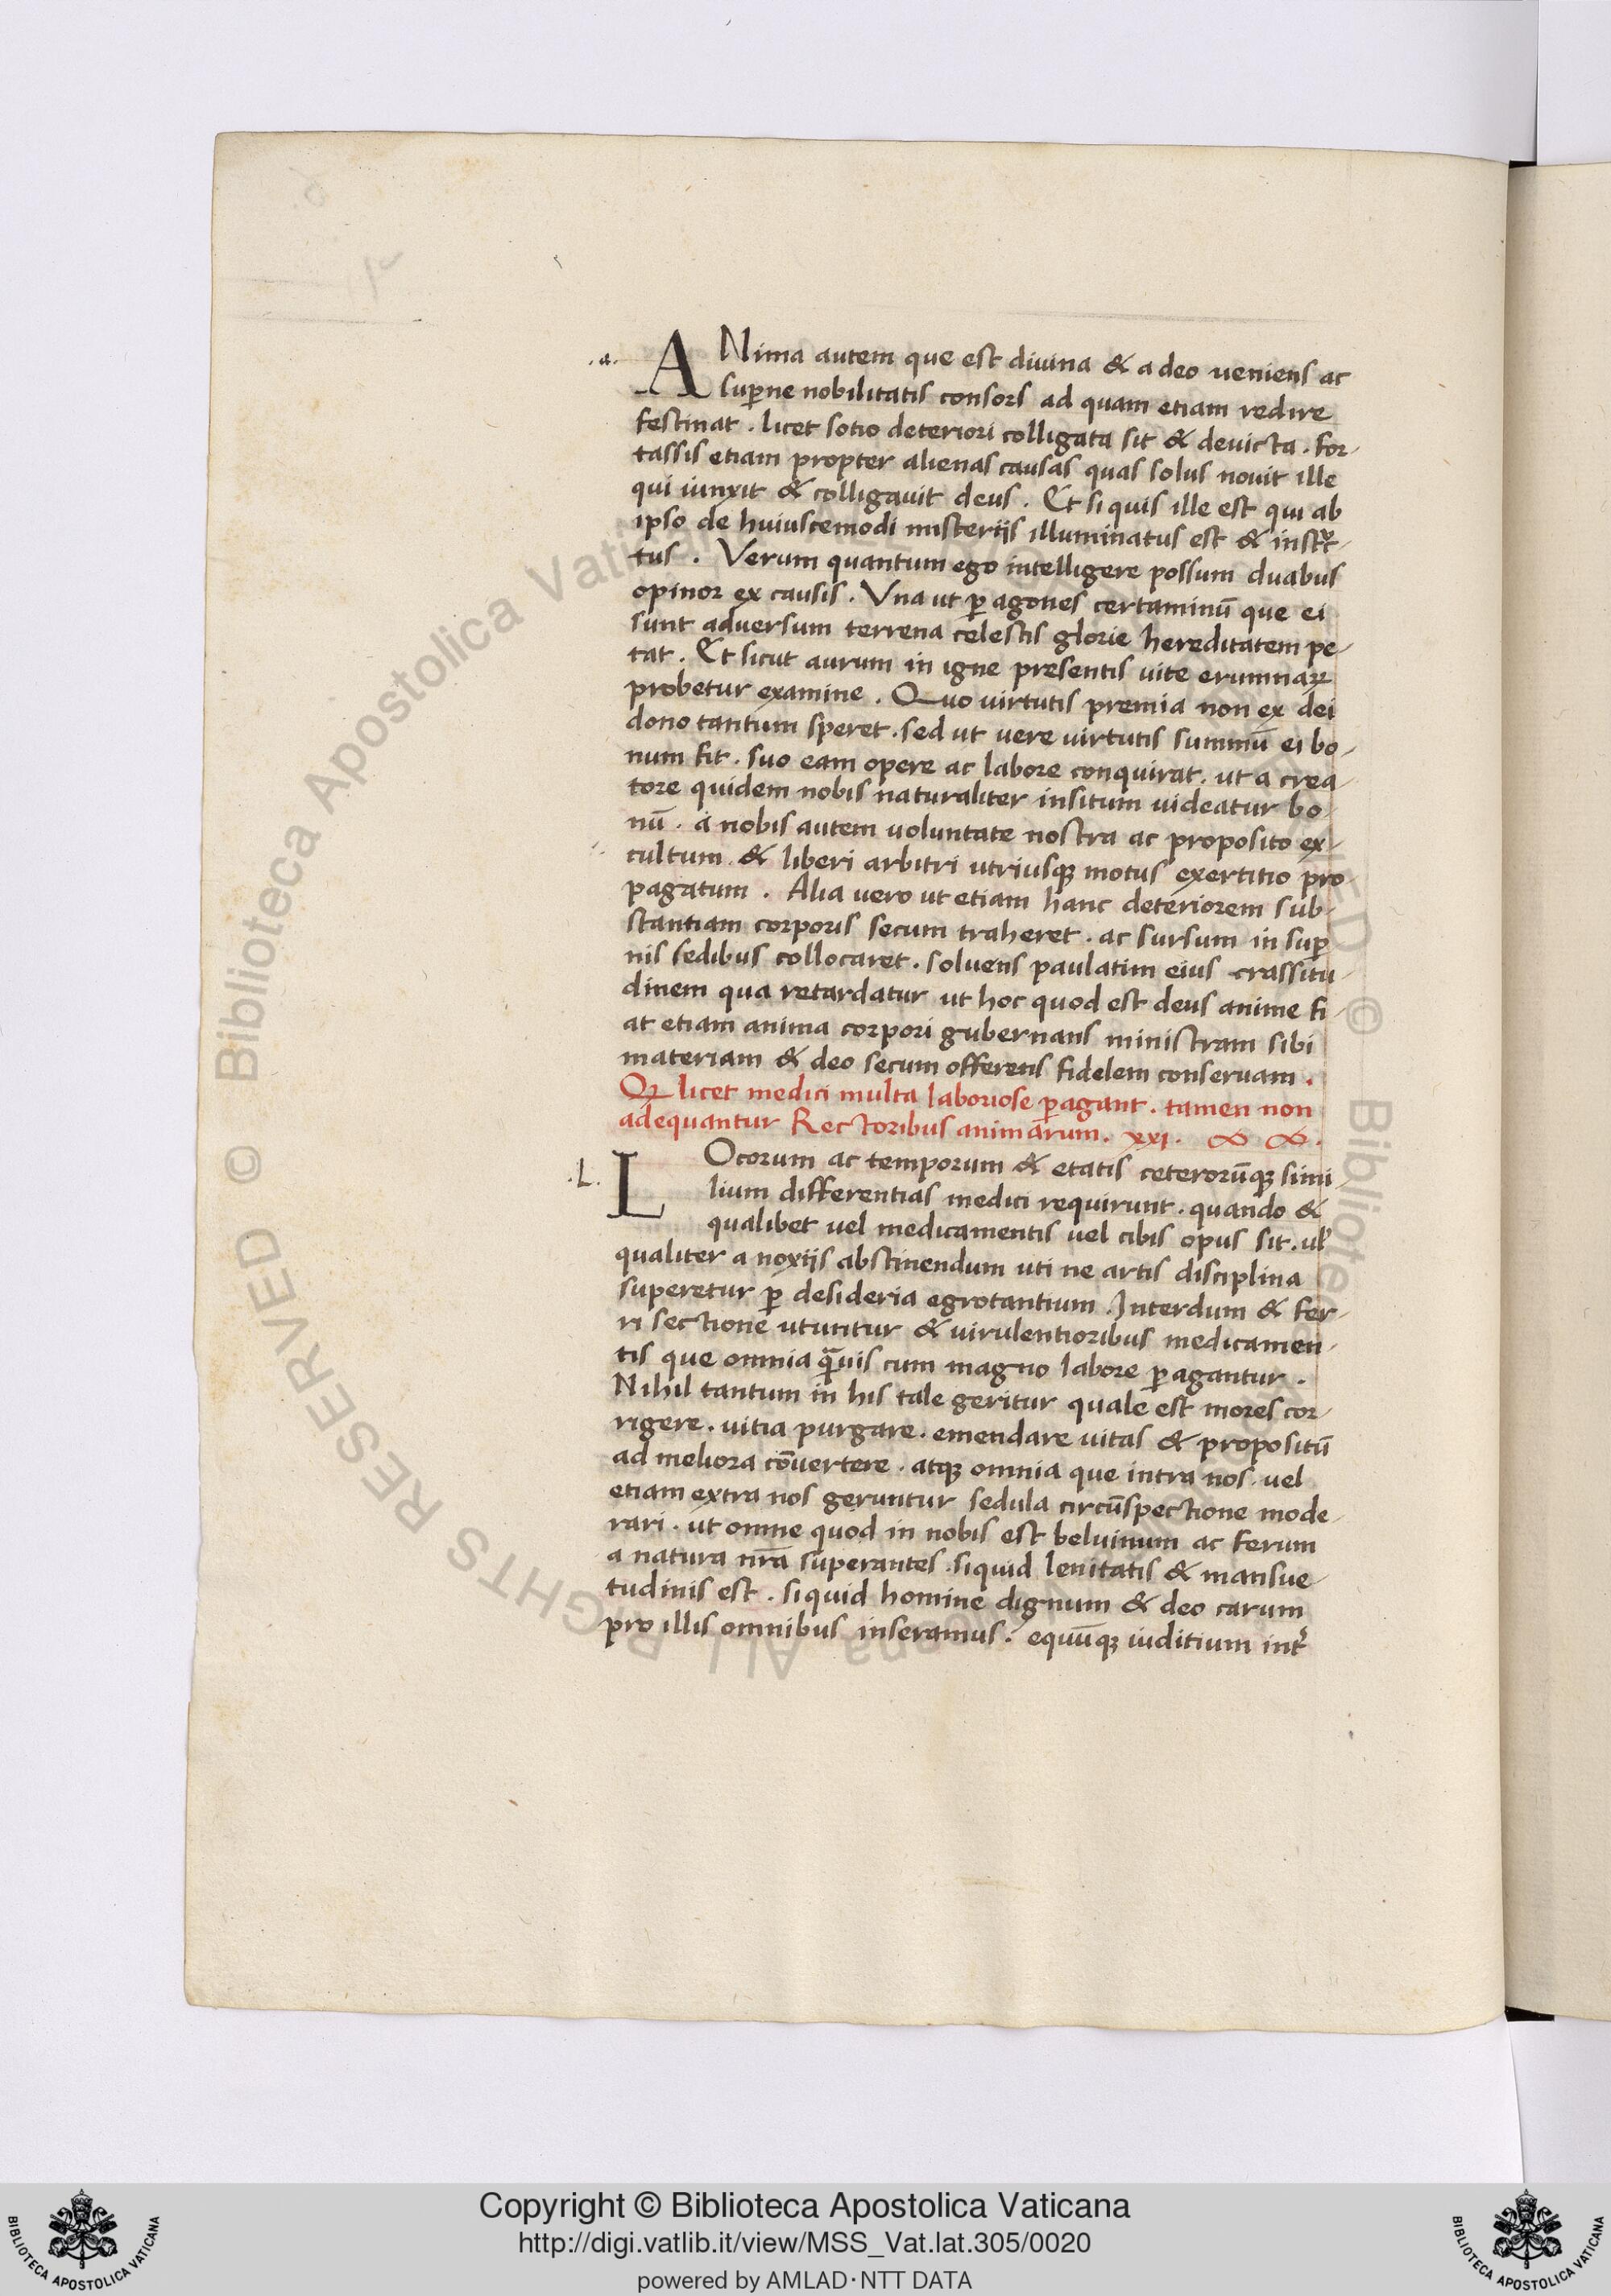 .a. ANima autem que est diuina & a deo ueniens ac
sup̲ne nobilitatis consors ad quam etiam redire
festinat . licet sotio deteriori colligata sit & deuicta . for-
tassis etiam propter alienas causas quas solus nouit ille
qui iunxit & colligauit deus . Et si quis ille est qui ab
ipso de huiuscemodi misterijs illuminatus est & instr̄-
tus . Verum quantum ego intelligere possum duabus
opinor ex causis . Vna ut p̲ agones certaminū que ei
sunt aduersum terrena celestis glorie hereditatem pe-
tat . Et sicut aurum in igne presentis uite erumnaꝝ
probetur examine . Quo uirtutis premia non ex dei
dono tantum speret . sed ut uere uirtutis summū ei bo-
num fit . suo eam opere ac labore conquirat . ut a crea-
tore quidem nobis naturaliter insitum uideatur bo-
nū . a nobis autem uoluntate nostra ac proposito ex-
cultum . & liberi arbitri utriusqꝫ motus exertitio pro
pagatum . Alia uero ut etiam hanc deteriorem sub-
stantiam corporis secum traheret . ac sursum in sup̲
nis sedibus collocaret . soluens paulatim eius crassitu-
dinem qua retardatur ut hoc quod est deus anime fi-
at etiam anima corpori gubernans ministram sibi
materiam & deo secum offerens fidelem conseruam .
Ꝙ licet medici multa laboriose p̲agant . tamen non
adequantur Rectoribus animarum . xxi .
.L. LOcorum ac temporum & etatis ceterorūqꝫ simi-
lium differentias medici requirunt . quando &
qualibet uel medicamentis uel cibis opus sit . ul̛
qualiter a noxijs abstinendum uti ne artis disciplina
superetur p̲ desideria egrotantium . Interdum & fer-
ri sectione utuntur & uirulentioribus medicamen-
tis que omnia q̄uis cum magno labore p̲agantur .
Nihil tantum in his tale geritur quale est mores cor-
rigere . uitia purgare . emendare uitas & propositū
ad meliora cōuertere . atqꝫ omnia que intra nos . uel
etiam extra nos geruntur sedula circūspectione mode-
rari . ut omne quod in nobis est beluinum ac ferum
a natura nr̄a superantes . siquid lenitatis & mansue-
tudinis est . siquid homine dignum & deo carum
pro illis omnibus inseramus . equūqꝫ iuditium int̛
Copyright © Biblioteca Apostolica Vaticana
http://digi.vatlib.it/view/MSS_Vat.lat.305/0020
powered by AMLAD·NTT DATA
BIBLIOTECA APOSTOLICA VATICANA
BIBLIOTECA APOSTOLICA VATICANA